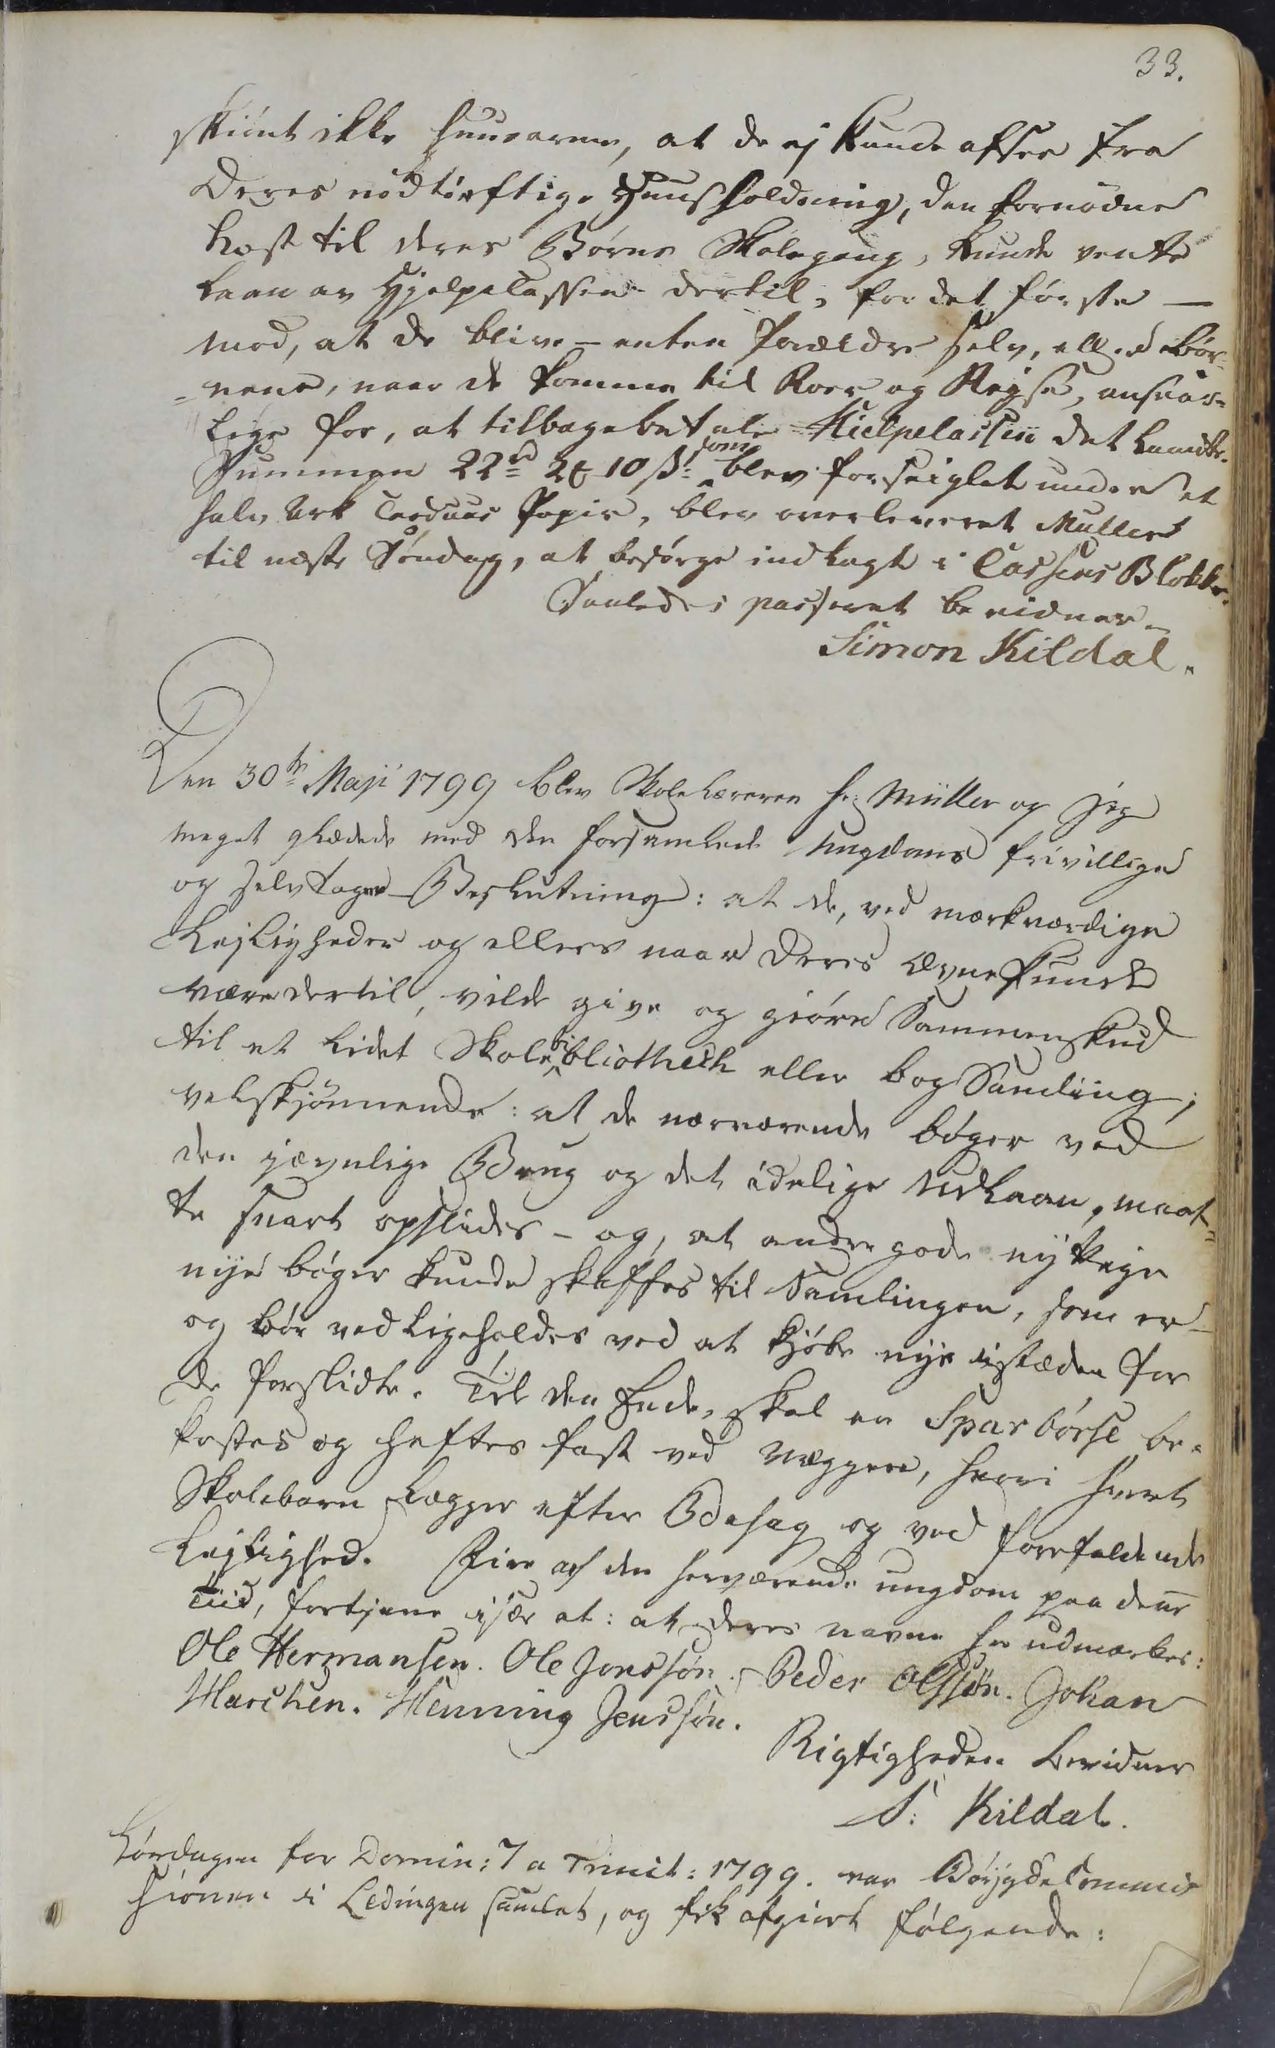 33.
skiønt ikke huusarme, at de ej kunde afsee fra
Deres nødtørftige Huusholdning, den fornødne
kost til deres Børns Skolegang, kunde vente
Laan av Hjelpecassen dertil, for det første –
mod, at de blive – enten Forældre selv, eller Bør-
nene, naar de komme til Roer og Rejse, ansvar-
lige for, at tilbagebetale Hielpecassen det Laante.
Summen 22rd 2 10 s: som blev forseiglet under et
halv Ark Cardues Papir, blev overleveret Müller
til næste Søndag, at besørge indlagt i Cassens Blokke.
Saaledes passeret bevidner
Simon Kildal.
Den 30te Maji 1799 blev Skolelæreren hr: Müller og jeg
meget glædede med den forsamlede Ungdoms frivillige
og selvtagne Beslutning: at de, ved mærkværdige
Lejligheder og ellers naar Deres Evne kunde
være dertil, vilde give og giøre Sammenskud
til et lidet Skolebibliothech eller bog Samling;
velskjønnende: at de nærværende bøger ved
den jævnlige Brug og det idelige Udlaan, maat-
te snart opslides – og, at andre gode nyttige
nye bøger kunde skaffes til Samlingen, som er
og bør vedligeholdes ved at kjøbe nye istæden for
de forslidte. Til den Ende, skal en Sparbørse be-
kostes og heftes fast ved Væggen, hvori hvert
Skolebarn Lægger efter Behag og ved forefaldende
Lejlighed. Fire af den herværende ungdom paa denne
Tiid, fortjene især at: at deres navne her udmærkes:
Ole Hermansen. Ole Jonssøn. Peder Olssøn. Johan
Marchen. Henning Jenssøn.
Rigtigheden bevidner
S: Kildal.
Lørdagen for Domin: 7 a Trinit: 1799. var Bøygdecommis
sionen i Lødingen samlet, og fik afgiort følgende: